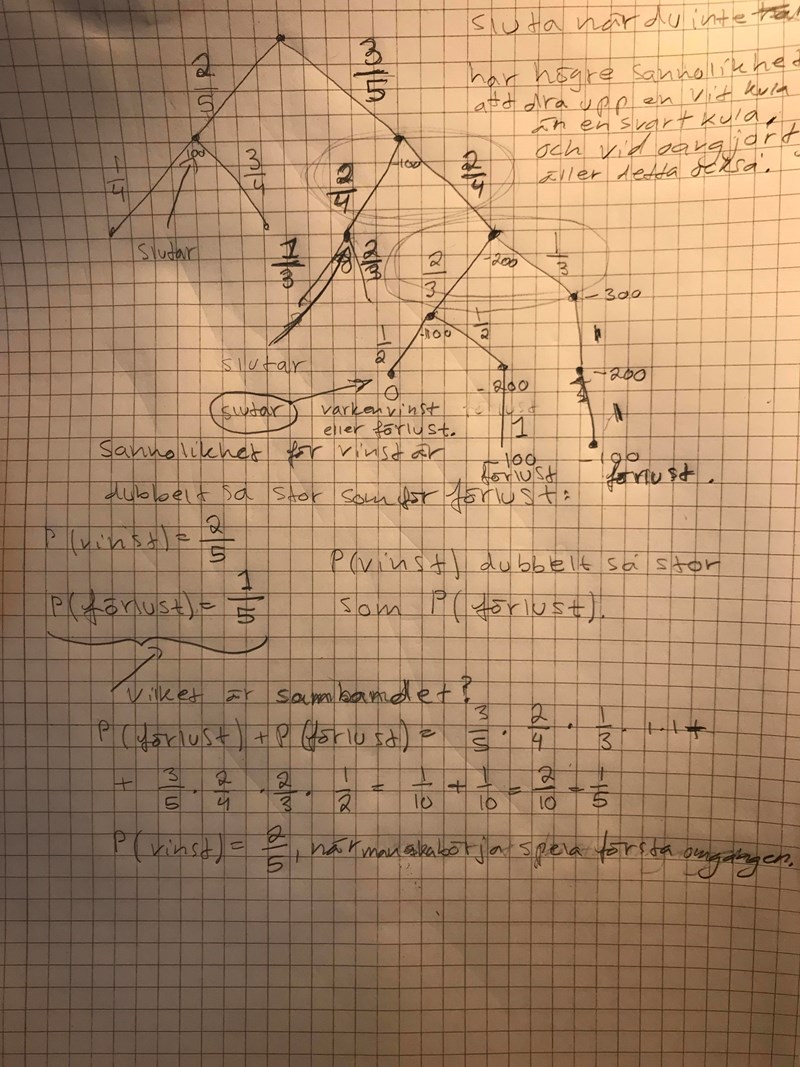 sluta när du inte
har högre sannolikhet
att dra upp en vit kula
än en svart kula.
och vid oavgjort
äller detta också.
2/5
3/5
1/4
3/4
-100
2/4
2/4
slutar
1/3
2/3
0
2/3
-200
1/3
-300
slutar
1/2
-100
1/2
1
0
-200
-200
slutar
varken vinst
eller förlust.
1
1
-100
förlust
-100
förlust.
Sannolikhet för vinst är
dubbelt så stor som för förlust:
P(vinst) = 2/5
P(förlust) = 1/5
P(vinst) dubbelt så stor
som P(förlust).
Vilket är sambandet?
P(förlust) + P(förlust) = 3/5 · 2/4 · 1/3 · 1 · 1 +
+ 3/5 · 2/4 · 2/3 · 1/2 = 1/10 + 1/10 = 2/10 = 1/5
P(vinst) = 2/5, när man ska börja spela första omgången.